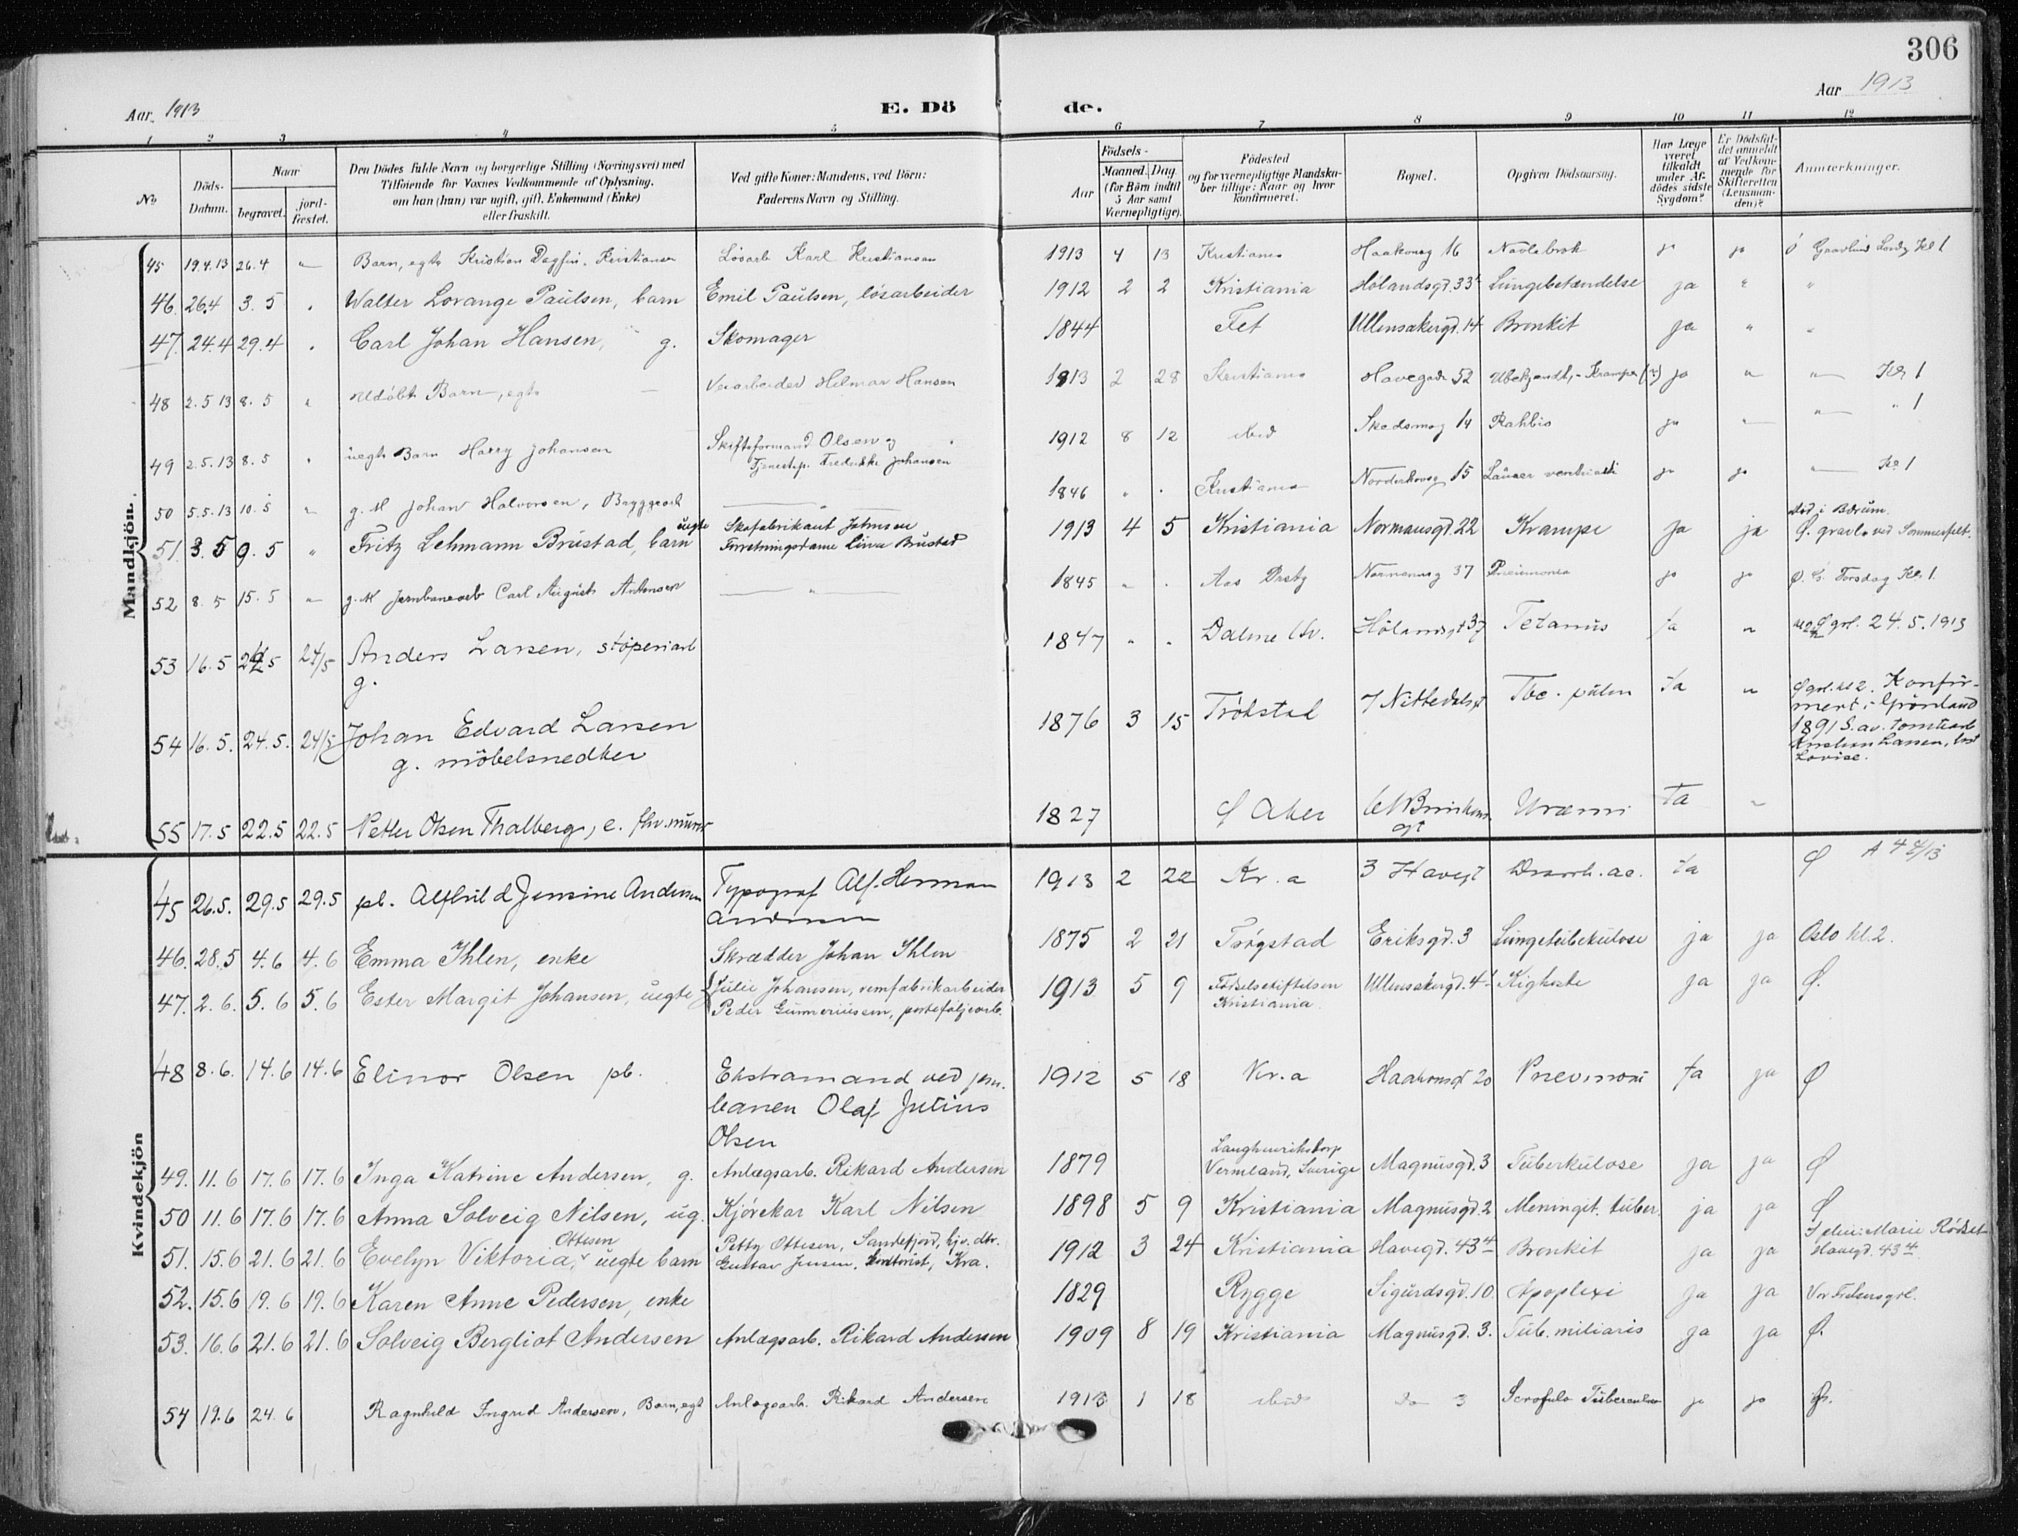 306
Aar 1913
E. Dö de.
Aar 1913
1 2 3 4 5 6 7 8 9 10 11 12
No
Döds-Datum.
Naar
begravet.
jord-fæstet.
Den Dödes fulde Navn og borgerlige Stilling (Næringsvei) med
Tilföiende for Voxnes Vedkommende af Oplysning,
om han (hun) var ugift, gift, Enkemand (Enke)
eller fraskilt.
Ved gifte Koner: Mandens, ved Börn:
Faderens Navn og Stilling.
Födsels-
Aar
Maaned. Dag.
(for Börn indtil
5 Aar samt
Værnepligtige).
Födested
og for værnepligtige Mandska-
ber tillige: Naar og hvor
konfirmeret.
Bopæl.
Opgiven Dödsaarsag.
Har Læge
været
tilkaldt
under Af-
dödes sidste
Sygdom?
Er Dödsfal-
det anmeldt
af Vedkom-
mende for
Skifteretten
(Lensman-
den)?
Anmærkninger.
Mandkjön.
45 19.4.13 26.4 " Barn, egte Kristian Dagfin Kristiansen Lösarb Karl Kristiansen 1913 4 13 Kristiania Haakonsg 16 Navlebrok ja ja Ø Gravlund Lördg Kl 1
46. 26.4 3.5 " Walter Lorange Paulsen, barn Emil Paulsen, lösarbeider 1912 2 2 Kristiania Hölandsgd. 33 Lungebetændelse ja " "
47. 24.4 29.4 " Carl Johan Hansen, g. Skomager 1844 Fet Ullensakergd. 14 Bronkit ja " "
48 2.5.13 8.5 " Udöbt Barn, egte Veiarbeider Hilmar Hansen 1913 2 28 Kristiania Havegade 52 Ubekjendt, - Krampe (?) ja " " Kl 1
49 2.5.13 8.5 " uegte Barn Harry Johansen Skifteformand Olsen og
Tjenestep. Fredrikke Johansen 1912 8 12 ibid Skedsmog 14 Rakhis ja " " " 1
50 5.5.13 10.5 " g. M Johan Halvorsen, Bryggearb " 1846 " " Kristiania Norderhovsg 15 ja ja " Kl 1
51. 3.5 9.5 " Fritz Lehmann Brustad, uegte barn Skofabrikant Johnsen
Forretningsdame Lina Brustad 1913 4 5 Kristiania Normansgd. 22 Krampe ja ja död i Bærum.
Ø. gravl. ved Sommerfelt.
52 8.5 15.5 " g. M Jernbanearb Carl August Antonsen " 1845 " " Aas Normannsg 37 Pneumonia ja ja Ø. G. Torsdag Kl. 1
53 16.5 24.5 24/5 Anders Larsen, støperiarb
g. 1847 " " Hölandsgt 37 Tetanus Ja " Ø grl. 24.5.1913
54 16.5. 24.5. 24/5 Johan Edvard Larsen
g. möbelsnedker 1876 3 15 Trökstad 7 Nittedalsgt Tbc. pulm Ja " Ø grl. kl 2. Konfir-
mert i Grönland
1891 S. av. tomtearb
Kristian Larsen,
Lovise.
55 17.5 22.5 22.5 Petter Olsen Thalberg, e. fhv. murer 1827 Ø Aker Uræmi Ja "
Kvindekjön
45 26.5. 29.5 29.5 pb. Alfhild Jensine Andersen Typograf Alf. Herman
Andersen 1913 2 22 Kr.a 3 Havegt Diarrh. ac. Ja Ø
46. 28.5 4.6 4.6 Emma Ihlen, enke Skrædder Johan Ihlen 1875 2 21 Trögstad Eriksgd. 3 Lungetuberkulose ja ja Oslo kl. 2.
47. 2.6. 5.6 5.6 Ester Margit Johansen, uegte Julie Johansen, remfabrikarbeider
Peder Gunneriussen, porteföljearb. 1913 5 9 Födselsstiftelsen
Kristiania. Ullensakergd. 4 Kighoste ja ja Ø.
48 8.6. 14.6 14.6 Elinor Olsen pb. Ekstramand ved jern-
banen Olaf Julius
Olsen 1912 5 18 Kr.a Haakonsgt 20 Pnevmoni Ja ja Ø
49. 11.6 17.6 17.6 Inga Katrine Andersen, g. Anlægsarb. Rikard Andersen 1879 Langhenrikstorp
Vermland, Sverige Magnusgd. 3 Tuberkulose ja ja Ø
50 11.6 17.6 17.6 Anna Solveig Nilsen, ug. Kjörekar Karl Nilsen 1898 5 9 Kristiania Magnusgd. 2 Meningit. tuber. ja ja Ø
51. 15.6 21.6 21.6 Evelyn Viktoria Ottesen, uegte barn Petty Ottesen, Sandefjord, hjv. dtr.
Gustav Jensen, kontorist, Kra. 1912 3 24 Kristiania Havegd. 43 4 Bronkit ja ja Marie Rödset
Havegd. 43 4.
52. 15.6 19.6 19.6 Karen Anne Pedersen, enke 1829 Rygge Sigurdsgd. 10 Apoplexi ja ja Vor Frelsers grl.
53. 16.6 21.6 21.6 Solveig Bergliot Andersen Anlægsarb. Rikard Andersen 1909 8 19 Kristiania Magnusgd. 3. Tub. miliaris ja ja Ø.
54 19.6 24.6 Ragnhild Ingrid Andersen, Barn, egt Anlægsarb. Rikard Andersen 1913 1 18 ibid do 3 Scrofulo Tuberculose ja ja Ø.